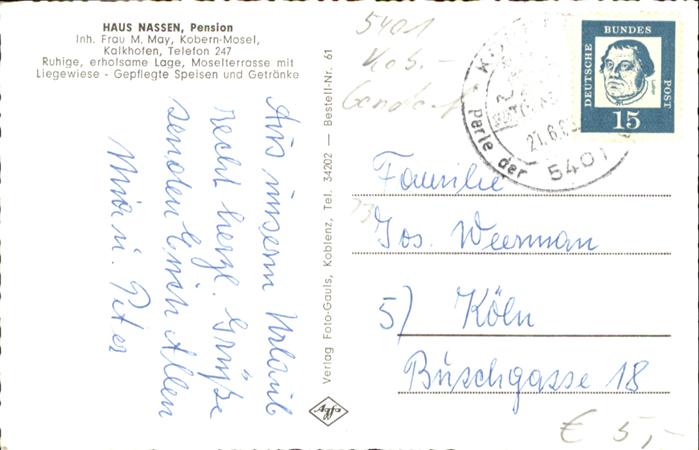 HAUS NASSEN, Pension
Inh. Frau M. May, Kobern-Mosel,
Kalkhofen, Telefon 247
Ruhige, erholsame Lage, Moselterrasse mit
Liegewiese - Gepflegte Speisen und Getränke
Aus unserm Urlaub
recht herzl. Grüße
senden Euch Allen
Mia u. Peter
Verlag Foto-Gauls, Koblenz, Tel. 34202 — Bestell-Nr. 61
Agfa
5401
Kob.-
Gondorf
Perle der
21.6.
5401
DEUTSCHE BUNDES POST
Luther
15
Familie
Jos. Weerman
5) Köln
Büschgasse 18
€ 5,-